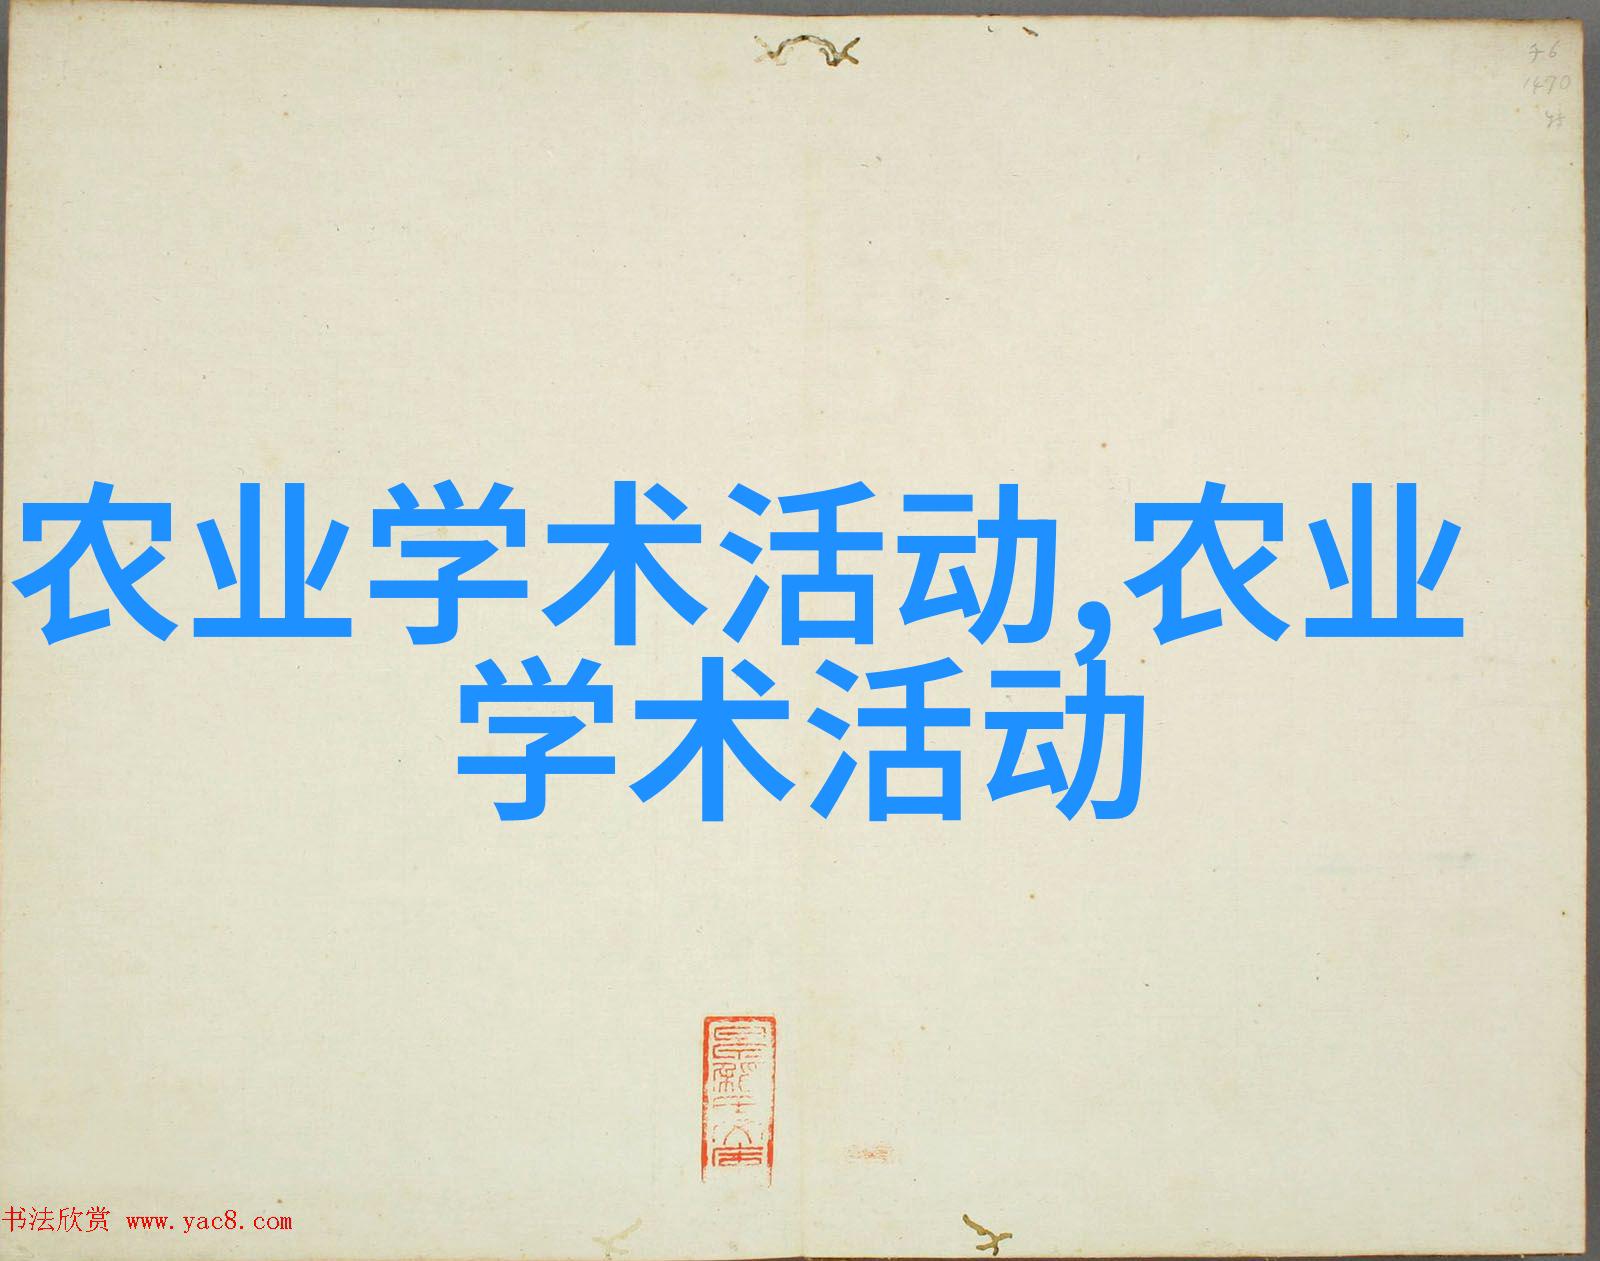 子6
1470
农业学术活动,农业
学术活动
书法欣赏 www.yac8.com